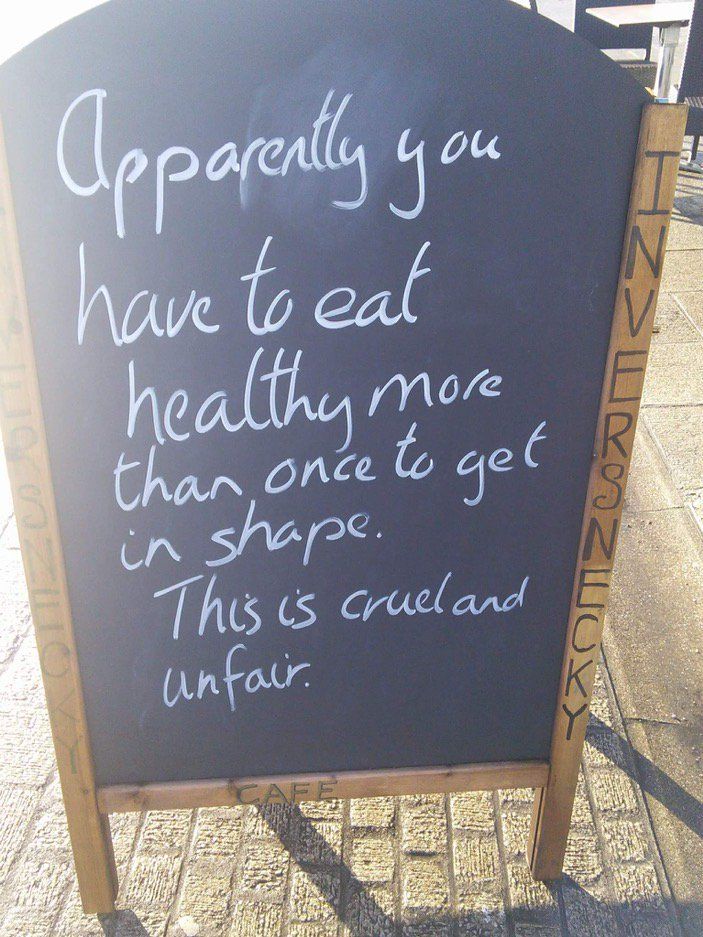 Apparently you
have to eat
healthy more
than once to get
in shape.
This is cruel and
unfair.
INVERSNECKY
INVERSNECKY
CAFE